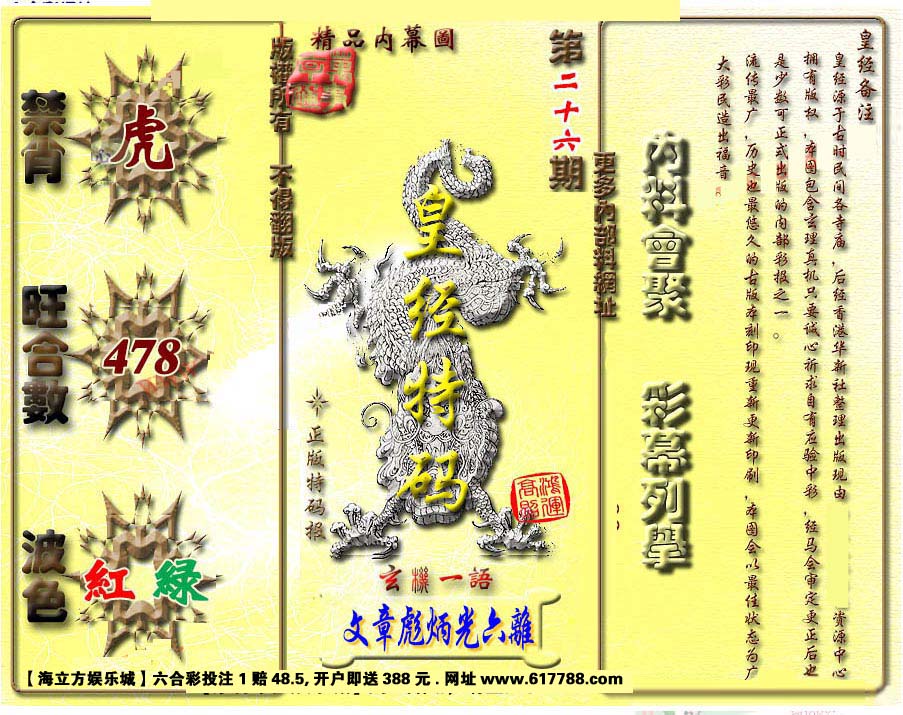 精品内幕圖
第二十六期
版權所有 不得翻版
更多內部料網址
禁肖
虎
旺合數
478
波色
紅 綠
皇经特码
正版特码报
鴻運高照
玄機一語
文章彪炳光六離
內料會聚
彩幕列舉
皇经备注
皇经源于古时民间各寺庙,后经香港华新社整理出版现由 资源中心
拥有版权,本图包含玄理真机只要诚心祈求自有应验中彩,经马会审定更正后也
是少数可正式出版的内部彩报之一。
流传最广,历史也最悠久的古版本刻印现重新更新印刷,本图会以最佳状态为广
大彩民造出福音
【海立方娱乐城】六合彩投注1赔48.5,开户即送388元.网址www.617788.com